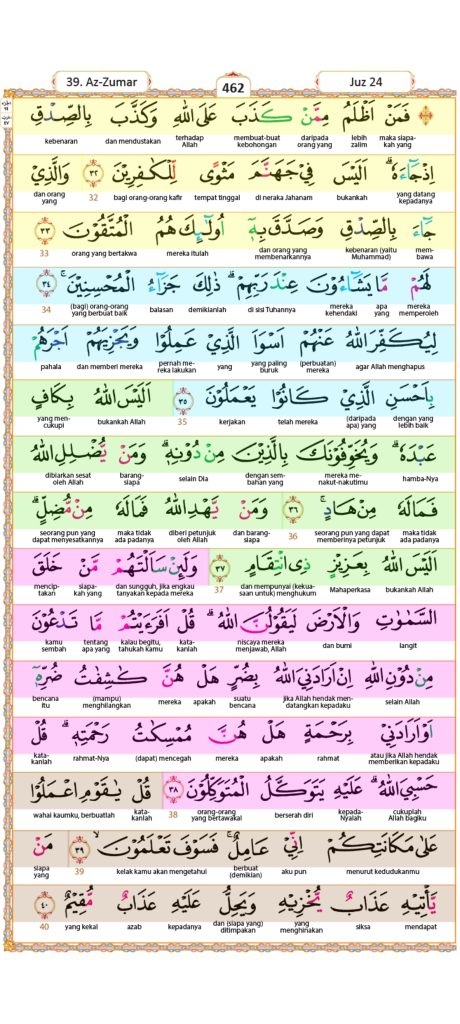 39. Az-Zumar
462
Juz 24
فَمَنْ اَظْلَمُ مِمَّنْ كَذَبَ عَلَى اللّٰهِ وَكَذَّبَ بِالصِّدْقِ
maka siapakah yang lebih zalim daripada orang yang membuat-buat kebohongan terhadap Allah dan mendustakan kebenaran
اِذْ جَاۤءَهٗۗ اَلَيْسَ فِيْ جَهَنَّمَ مَثْوًى لِّلْكٰفِرِيْنَ ٣٢ وَالَّذِيْ
yang datang kepadanya bukankah di neraka Jahanam tempat tinggal bagi orang-orang kafir 32 dan orang yang
جَاۤءَ بِالصِّدْقِ وَصَدَّقَ بِهٖٓ اُولٰۤىِٕكَ هُمُ الْمُتَّقُوْنَ ٣٣
membawa kebenaran (yaitu Muhammad) dan orang yang membenarkannya mereka itulah orang yang bertakwa 33
لَهُمْ مَّا يَشَاۤءُوْنَ عِنْدَ رَبِّهِمْۗ ذٰلِكَ جَزَاۤءُ الْمُحْسِنِيْنَۚ ٣٤
mereka memperoleh apa yang mereka kehendaki di sisi Tuhannya demikianlah balasan (bagi) orang-orang yang berbuat baik 34
لِيُكَفِّرَ اللّٰهُ عَنْهُمْ اَسْوَاَ الَّذِيْ عَمِلُوْا وَيَجْزِيَهُمْ اَجْرَهُمْ
agar Allah menghapus (perbuatan) mereka yang paling buruk yang pernah mereka lakukan dan memberi mereka pahala
بِاَحْسَنِ الَّذِيْ كَانُوْا يَعْمَلُوْنَ ٣٥ اَلَيْسَ اللّٰهُ بِكَافٍ
dengan yang lebih baik (daripada apa) yang telah mereka kerjakan 35 bukankah Allah yang mencukupi
عَبْدَهٗۗ وَيُخَوِّفُوْنَكَ بِالَّذِيْنَ مِنْ دُوْنِهٖۗ وَمَنْ يُّضْلِلِ اللّٰهُ
hamba-Nya mereka menakut-nakutimu dengan sembahan yang selain Dia barangsiapa dibiarkan sesat oleh Allah
فَمَا لَهٗ مِنْ هَادٍۚ ٣٦ وَمَنْ يَّهْدِ اللّٰهُ فَمَا لَهٗ مِنْ مُّضِلٍّۗ
maka tidak ada padanya seorang pun yang dapat memberinya petunjuk 36 dan barangsiapa diberi petunjuk oleh Allah maka tidak ada padanya seorang pun yang dapat menyesatkannya
اَلَيْسَ اللّٰهُ بِعَزِيْزٍ ذِى انْتِقَامٍ ٣٧ وَلَىِٕنْ سَاَلْتَهُمْ مَّنْ خَلَقَ
bukankah Allah Mahaperkasa dan mempunyai (kekuasaan untuk) menghukum 37 dan sungguh, jika engkau tanyakan kepada mereka siapakah yang menciptakan
السَّمٰوٰتِ وَالْاَرْضَ لَيَقُوْلُنَّ اللّٰهُ ۗ قُلْ اَفَرَءَيْتُمْ مَّا تَدْعُوْنَ
langit dan bumi niscaya mereka menjawab, Allah katakanlah kalau begitu, tahukah kamu tentang apa yang kamu sembah
مِنْ دُوْنِ اللّٰهِ اِنْ اَرَادَنِيَ اللّٰهُ بِضُرٍّ هَلْ هُنَّ كٰشِفٰتُ ضُرِّهٖٓ
selain Allah jika Allah hendak mendatangkan kepadaku suatu bencana apakah mereka (mampu) menghilangkan bencana itu
اَوْ اَرَادَنِيْ بِرَحْمَةٍ هَلْ هُنَّ مُمْسِكٰتُ رَحْمَتِهٖۗ قُلْ
atau jika Allah hendak memberikan kepadaku rahmat apakah mereka (dapat) mencegah rahmat-Nya katakanlah
حَسْبِيَ اللّٰهُ ۗ عَلَيْهِ يَتَوَكَّلُ الْمُتَوَكِّلُوْنَ ٣٨ قُلْ يٰقَوْمِ اعْمَلُوْا
cukuplah Allah bagiku kepada-Nyalah berserah diri orang-orang yang bertawakal 38 katakanlah wahai kaumku, berbuatlah
عَلٰى مَكَانَتِكُمْ اِنِّيْ عَامِلٌ ۚ فَسَوْفَ تَعْلَمُوْنَۙ ٣٩ مَنْ
menurut kedudukanmu aku pun berbuat (demikian) kelak kamu akan mengetahui 39 siapa yang
يَّأْتِيْهِ عَذَابٌ يُّخْزِيْهِ وَيَحِلُّ عَلَيْهِ عَذَابٌ مُّقِيْمٌ ٤٠
mendapat siksa yang menghinakan dan (siapa yang) ditimpakan kepadanya azab yang kekal 40